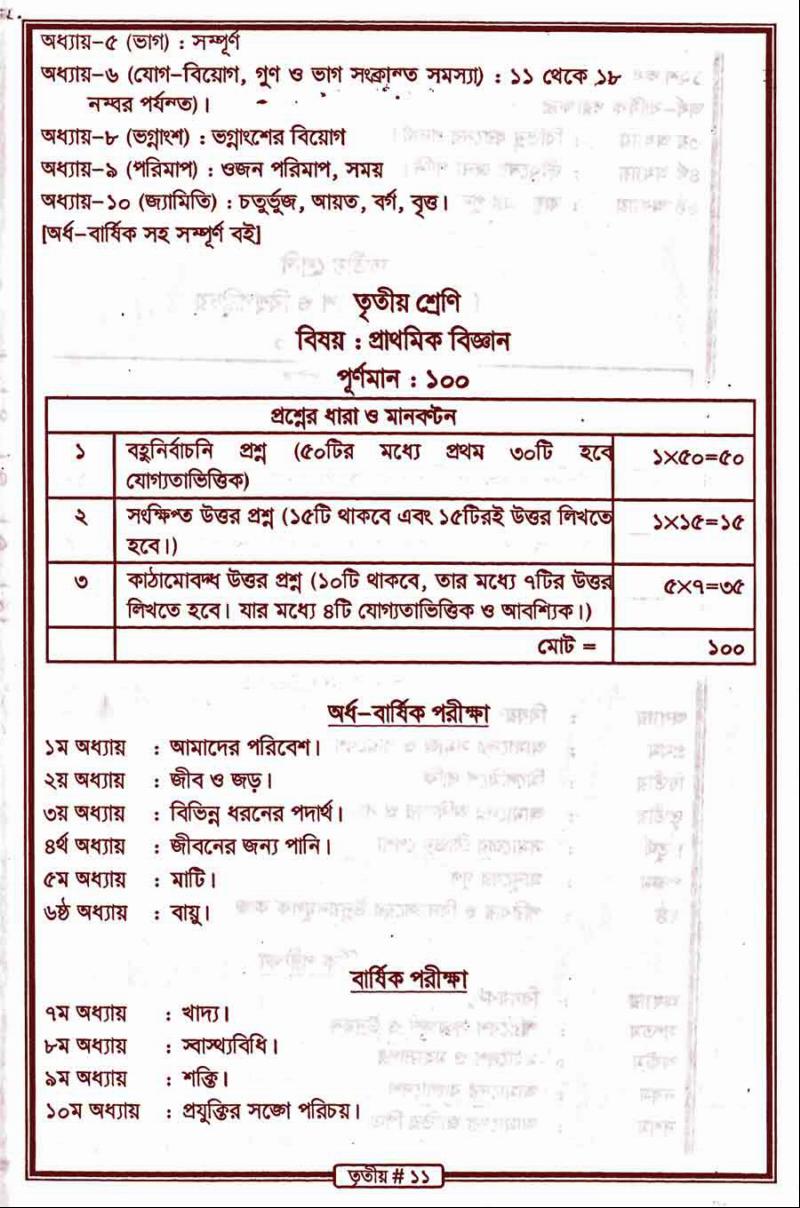 অধ্যায়-৫ (ভাগ) : সম্পূর্ণ
অধ্যায়-৬ (যোগ-বিয়োগ, গুণ ও ভাগ সংক্রান্ত সমস্যা) : ১১ থেকে ১৮
নম্বর পর্যন্ত)।
অধ্যায়-৮ (ভগ্নাংশ) : ভগ্নাংশের বিয়োগ
অধ্যায়-৯ (পরিমাপ) : ওজন পরিমাপ, সময়
অধ্যায়-১০ (জ্যামিতি) : চতুর্ভুজ, আয়ত, বর্গ, বৃত্ত।
[অর্ধ-বার্ষিক সহ সম্পূর্ণ বই]
তৃতীয় শ্রেণি
বিষয় : প্রাথমিক বিজ্ঞান
পূর্ণমান : ১০০
প্রশ্নের ধারা ও মানবণ্টন
১ বহুনির্বাচনি প্রশ্ন (৫০টির মধ্যে প্রথম ৩০টি হবে ১×৫০=৫০
যোগ্যতাভিত্তিক)
২ সংক্ষিপ্ত উত্তর প্রশ্ন (১৫টি থাকবে এবং ১৫টিরই উত্তর লিখতে ১×১৫=১৫
হবে।)
৩ কাঠামোবদ্ধ উত্তর প্রশ্ন (১০টি থাকবে, তার মধ্যে ৭টির উত্তর ৫×৭=৩৫
লিখতে হবে। যার মধ্যে ৪টি যোগ্যতাভিত্তিক ও আবশ্যিক।)
মোট = ১০০
অর্ধ-বার্ষিক পরীক্ষা
১ম অধ্যায় : আমাদের পরিবেশ।
২য় অধ্যায় : জীব ও জড়।
৩য় অধ্যায় : বিভিন্ন ধরনের পদার্থ।
৪র্থ অধ্যায় : জীবনের জন্য পানি।
৫ম অধ্যায় : মাটি।
৬ষ্ঠ অধ্যায় : বায়ু।
বার্ষিক পরীক্ষা
৭ম অধ্যায় : খাদ্য।
৮ম অধ্যায় : স্বাস্থ্যবিধি।
৯ম অধ্যায় : শক্তি।
১০ম অধ্যায় : প্রযুক্তির সঙ্গে পরিচয়।
তৃতীয় # ১১